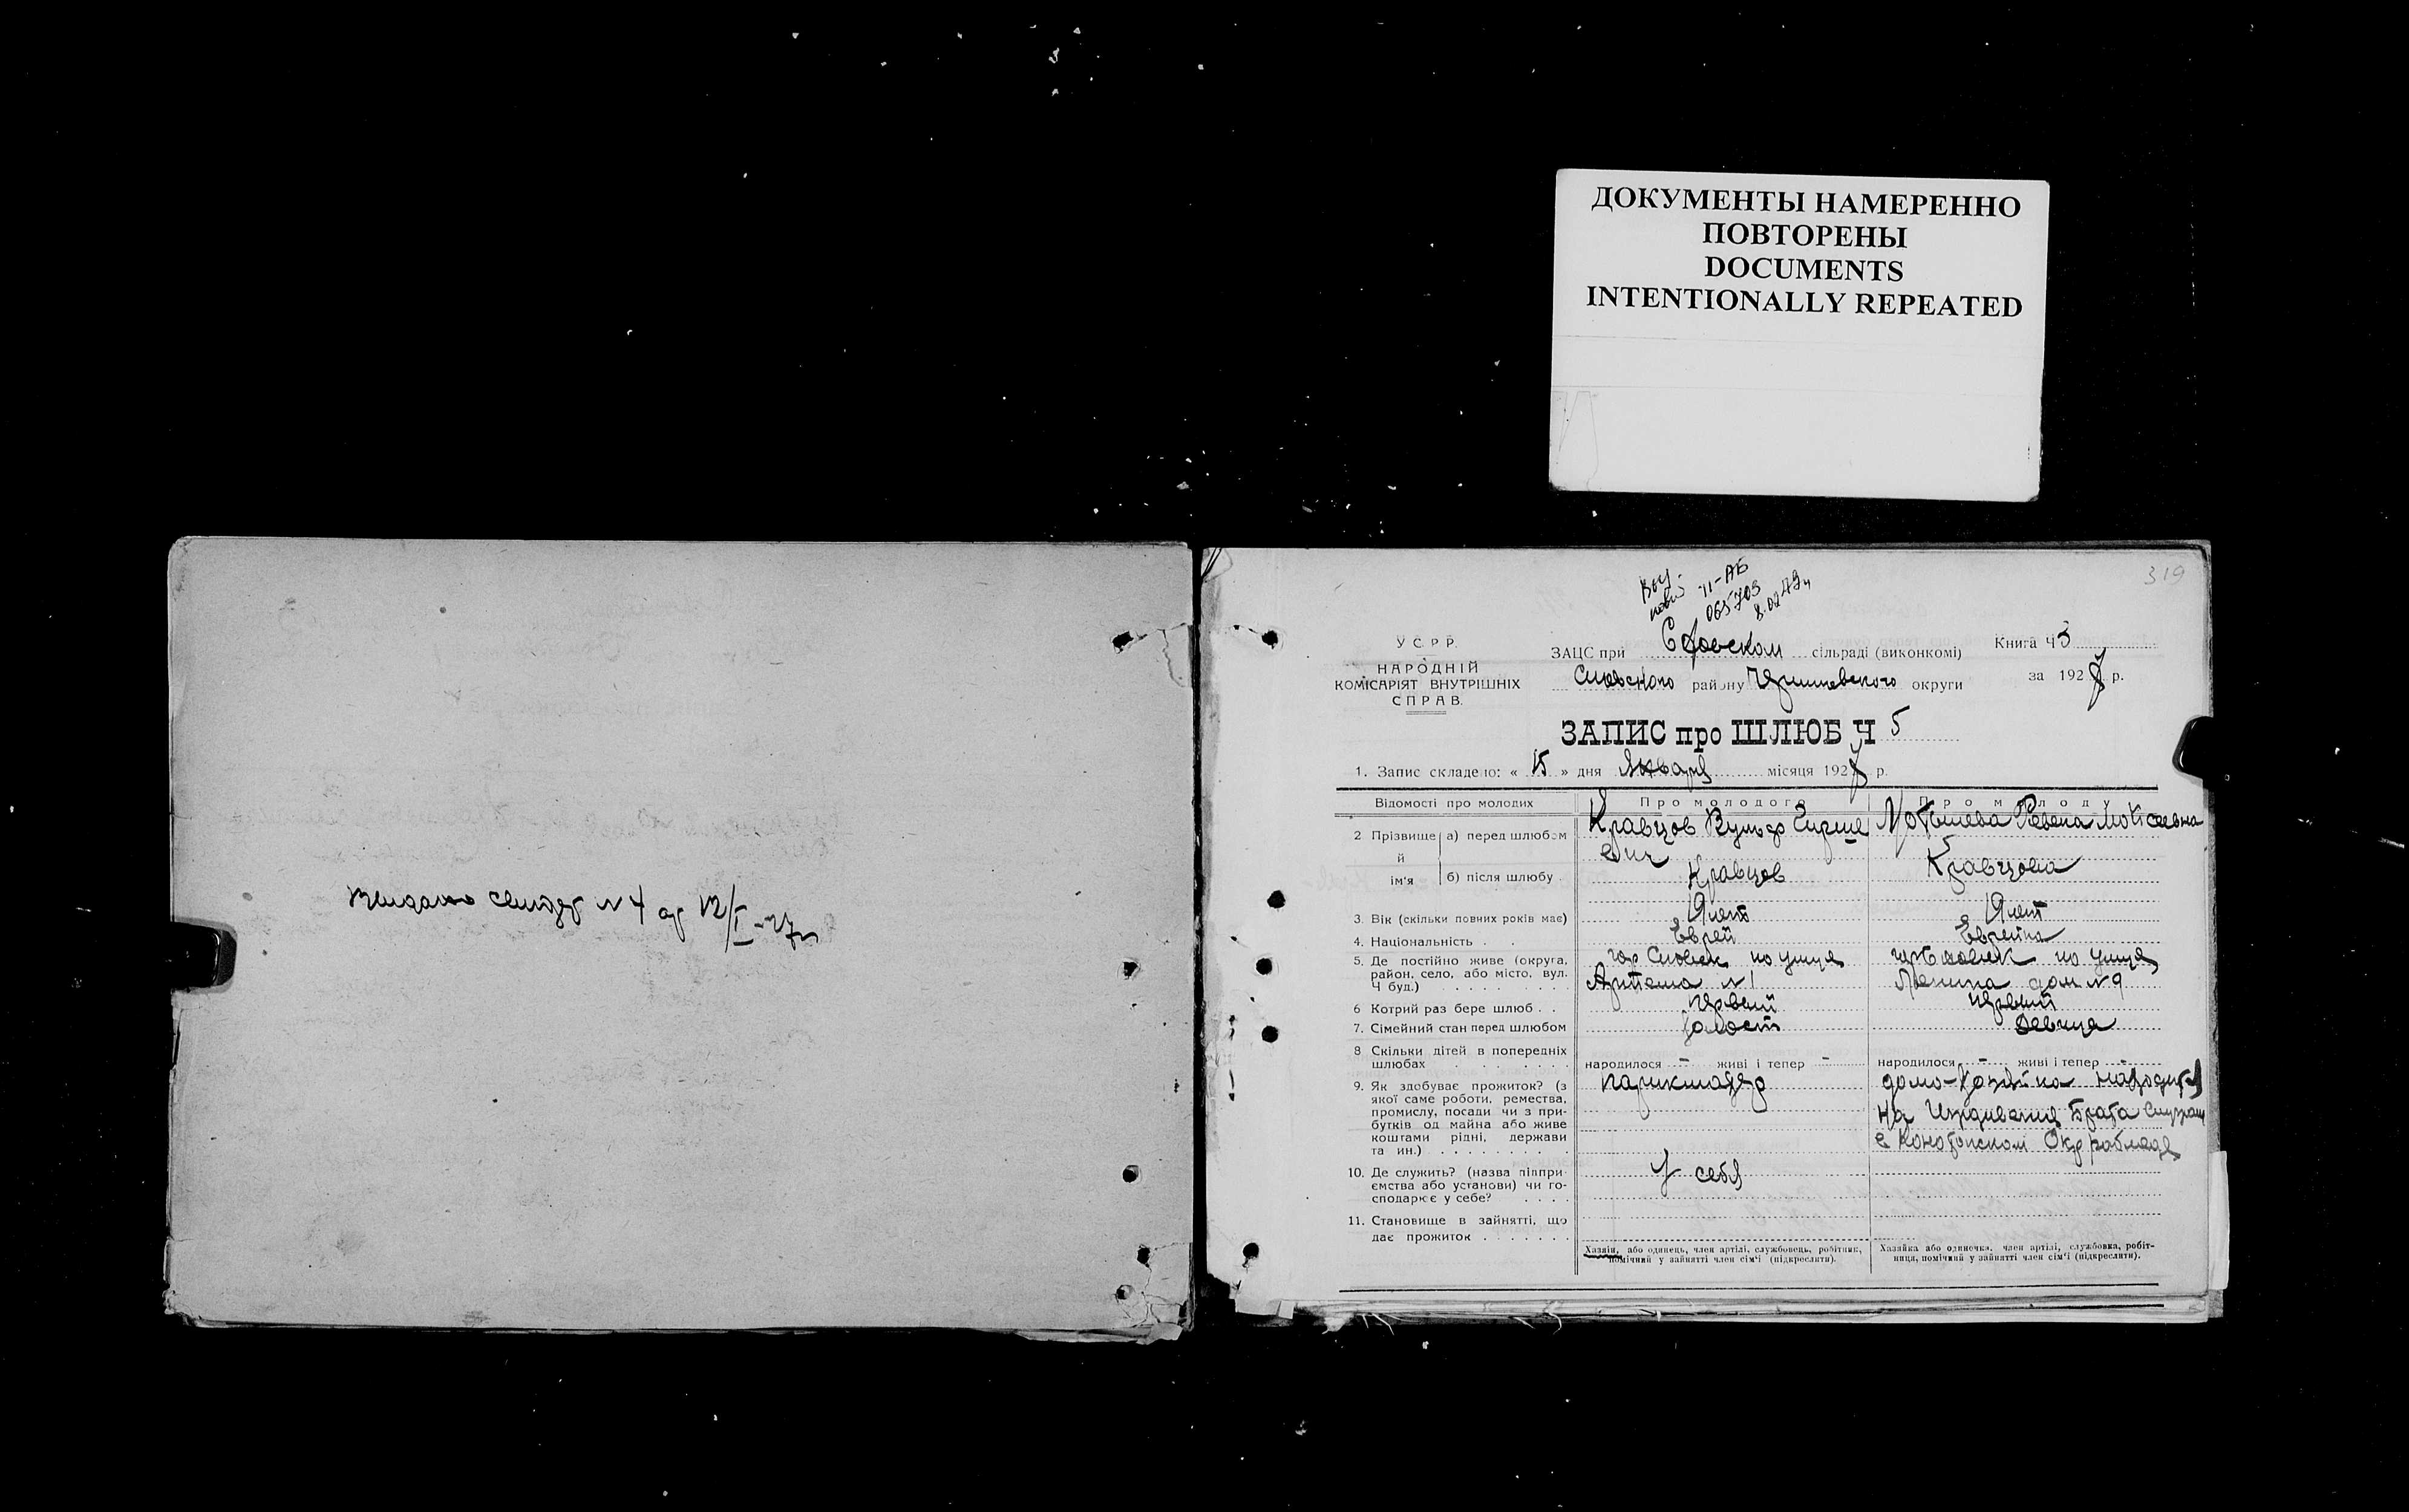 ДОКУМЕНТЫ НАМЕРЕННО
ПОВТОРЕНЫ
DOCUMENTS
INTENTIONALLY REPEATED
Выдано свидет N 4 от 12/I-27г
319
II-АБ
065703
У С Р Р.
НАРОДНІЙ
КОМІСАРІЯТ ВНУТРІШНІХ
СПРАВ.
ЗАЦС при сільраді (виконкомі)
Книга Ч 3
району округи
за 1927 р.
ЗАПИС про ШЛЮБ Ч 5
1. Запис складено: « 15 » дня Января місяця 1927 р.
Відомості про молодих
Про молодого
Про молоду
2 Прізвище й ім'я
а) перед шлюбом
Кравцов Вульф Гирше
вич
Ревека Моисеевна
б) після шлюбу .
Кравцов
Кравцова
3. Вік (скільки повних років має)
19 лет
19 лет
4. Національність . .
Еврей
Еврейка
5. Де постійно живе (округа,
район, село, або місто, вул.
Ч буд.) . . . . . . . .
гор по улице
Артема N 1
по улице
Ленина дом N 9
6 Котрий раз бере шлюб . .
Первый
Первый
7. Сімейний стан перед шлюбом
Холост
Девица
8 Скільки дітей в попередніх
шлюбах . . . . . . .
народилося – живі і тепер –
народилося – живі і тепер –
9. Як здобуває прожиток? (з
якої саме роботи, ремества,
промислу, посади чи з при-
бутків од майна або живе
коштами рідні, держави
та ин.) . . . . . . . .
парикмахер
домо-хозяйка находится
на Иждивении брата
в Конотопском
10. Де служить? (назва підпри-
ємства або установи) чи го-
сподарює у себе? . . . .
У себя
11. Становище в зайнятті, що
дає прожиток . . . . . . .
Хазяін, або одинець, член артілі, службовець, робітник,
помічний у зайнятті член сім'ї (підкреслити).
Хазяйка або одиначка, член артілі, службовка, робіт-
ниця, помічний у зайнятті член сім'ї (підкреслити).